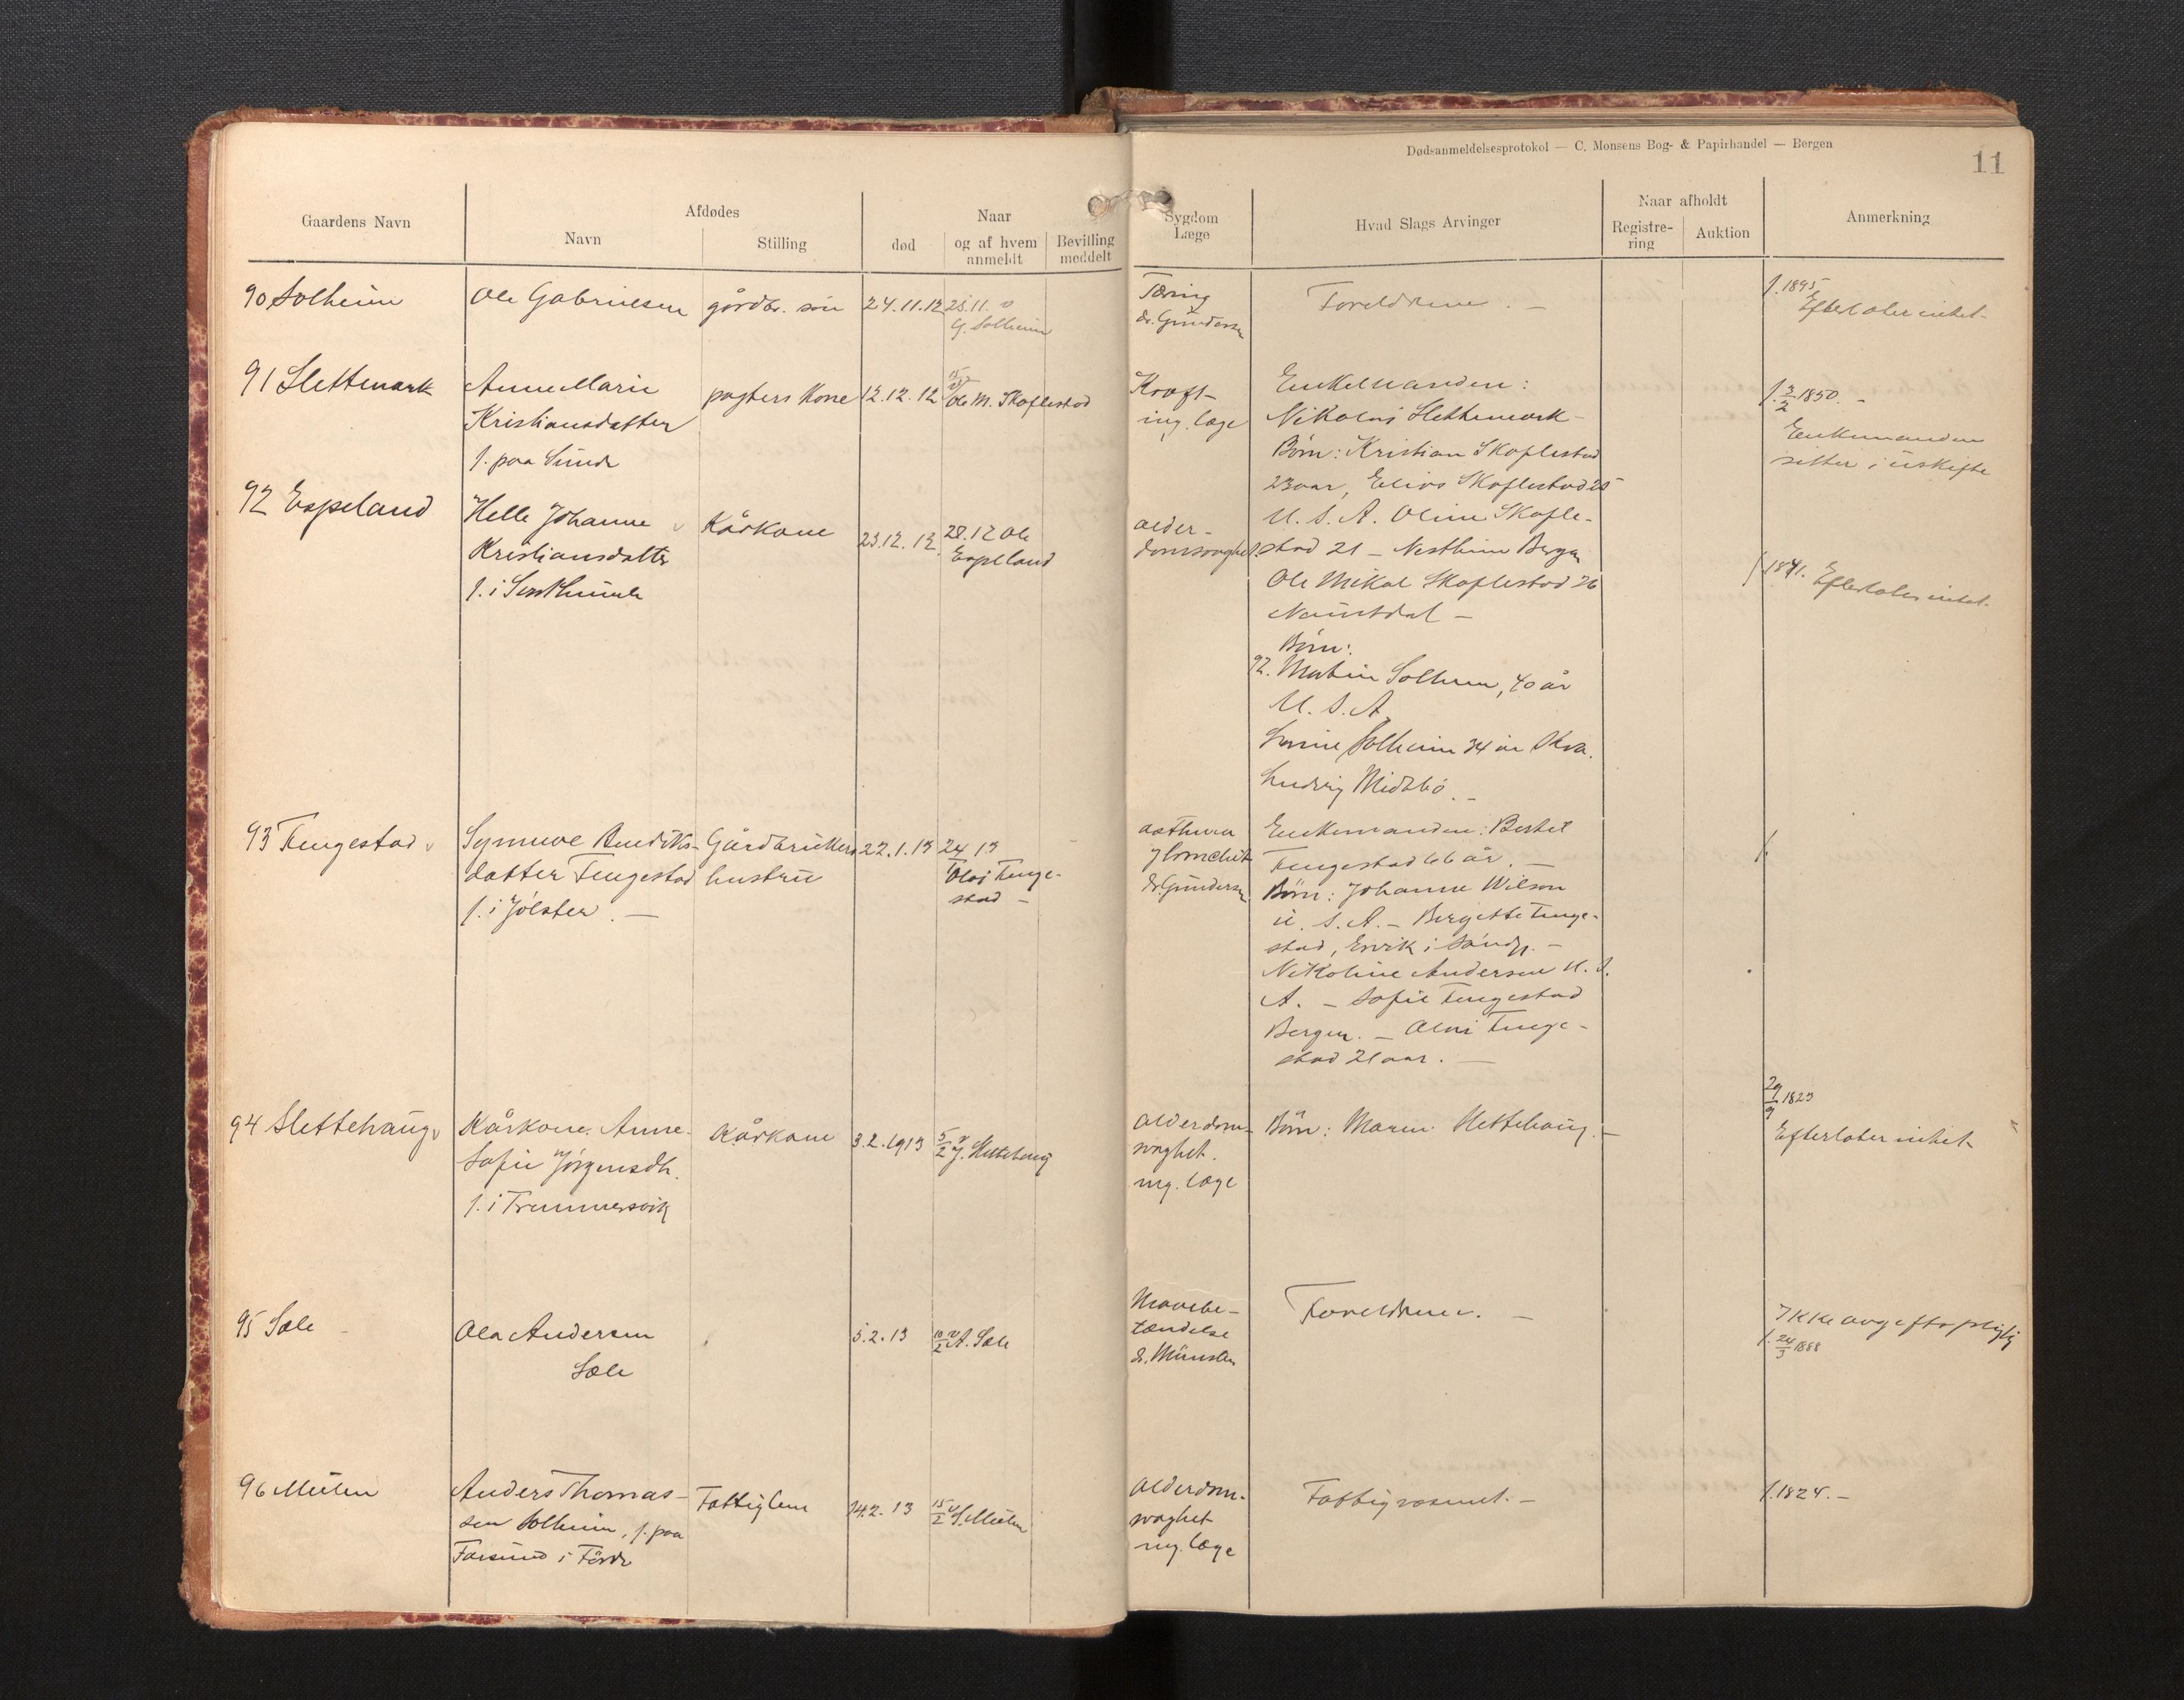 Dødsanmeldelsesprotokol — C. Monsens Bog- & Papirhandel — Bergen
11
Gaardens Navn
Afdødes
Navn
Stilling
død
Naar
og af hvem
anmeldt
Bevilling
meddelt
Sygdom
Læge
Hvad Slags Arvinger
Naar afholdt
Registre-
ring
Auktion
Anmerkning
90 Solheim
Ole Gabrielsen
gårdbr. søn
24.11.12
25.11. v
G. Solheim
Tæring
dr. Gundersen
Foreldrene. —
f. 1895
Efterlater intet
91 Slettemark
Anne Marie
Kristiansdatter
f. paa Sunde
pagters Kone
12.12.12
Ole M. Skaflestad
Kræft-
ing. læge
Enkemanden:
Nikolai Slettemark
Børn: Kristian Skaflestad
23 aar, Elias Skaflestad 25
U. S. A. Oline Skafle-
stad 21 — Nestheim Bergen
Ole Mikal Skaflestad 26
Naustdal —
f. 2/2 1850. -
Enkemanden
sitter i uskifte
92 Espeland
Helle Johanne
Kristiansdatter
f. i
Kårkone
23.12.12
28.12 Ole
Espeland
alder-
domssvaghet
Børn:
92. Martin Solheim, 40 år
U. S. A.
Solheim 34 år
Ludvig Midtbø —
f 1841. Efterlater intet.
93 Tengestad
Synneve Bendiks-
datter Tengestad
f. i Jølster. —
Gårdbrukers
hustru
22.1.13
24 13
Olai Tenge-
stad —
asthma
dr. Gundersen
Enkemanden: Bertel
Tengestad 66 år. —
Børn: Johanne Wilson
U. S. A. — Bergitte Tenge-
stad, Ervik i Søndf. —
Nikoline Andersen U. S.
A. — Sofie Tengestad
Bergen. — Olai Tenge-
stad 21 aar. —
f.
94 Slettehaug
Kårkone. Anne
Sofie Jørgensdt.
f. i Trommersvik
Kårkone
3.2.1913
5/2 v J. Slettehaug
Alderdom-
svaghet.
ing. læge
Børn: Maren Slettehaug. —
29/9 1823
Efterlater intet
95 Sæle
Ola Andersen
Sæle
5.2.13
10/2 v A. Sæle
Mavebe-
tændelse
dr. Münster
Foreldrene. —
Ikke avgiftspligtig
f. 24/3 1888
96 Mulen
Anders Thomas-
sen Solheim, f. paa
Farsund i Førde
Fattiglem
14.2.13
15/2 v S. Mulen
Alderdom-
svaghet
ing. læge
Fattigvæsenet. —
f. 1824. —